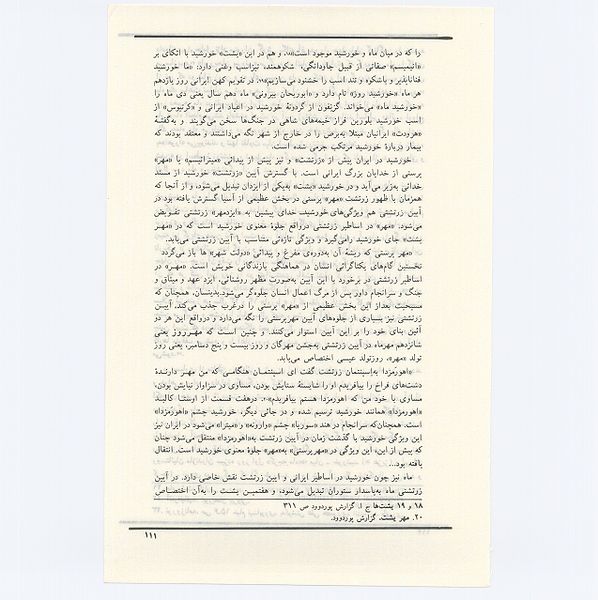 را که در میان ماه و خورشید موجود است»۱۸. و هم در این «یشت» خورشید با اتکای بر
«انیمیسم» صفاتی از قبیل جاودانگی، شکوهمند، تیزاسب وغنی دارد: «ما خورشید
فناناپذیر و باشکوه و تند اسب را خشنود می‌سازیم»۱۹. در تقویم کهن ایرانی روز یازدهم
هر ماه «خورشید روز» نام دارد و «ابوریحان بیرونی» ماه دهم سال یعنی دی ماه را
«خورشید ماه» می‌خواند. گزنفون از گردونهٔ خورشید در اعیاد ایرانی و «کرتیوس» از
اسب خورشید بلورین فراز خیمه‌های شاهی در جنگ‌ها سخن می‌گویند و به‌گفتهٔ
«هرودت» ایرانیان مبتلا به‌برص را در خارج از شهر نگه می‌داشتند و معتقد بودند که
بیمار دربارهٔ خورشید مرتکب جرمی شده است.
خورشید در ایران پیش از «زرتشت» و نیز پیش از پیدائی «میترائیسم» یا «مهر»
پرستی از خدایان بزرگ ایرانی است. با گسترش آیین «زرتشت» خورشید از مسند
خدائی به‌زیر می‌آید و در خورشید «یشت» به‌یکی از ایزدان تبدیل می‌شود، و از آنجا که
همزمان با ظهور زرتشت «مهر» پرستی در بخش عظیمی از آسیا گسترش یافته بود در
آیین زرتشتی هم ویژگی‌های خورشید، خدای پیشین به «ایزدمهر» زرتشتی تفویض
می‌شود. «مهر» در اساطیر زرتشتی درواقع جلوهٔ معنوی خورشید است که در «مهر
یشت» جای خورشید رامی‌گیرد و ویژگی تازه‌ئی متناسب با آیین زرتشتی می‌یابد.
«مهر پرستی که ریشهٔ آن به‌دوره‌ی مفرغ و پیدائی «دولت شهر» ها باز می‌گردد
نخستین گام‌های یکتاگرائی انسان در هماهنگی بازندگانی خویش است. «مهر» در
اساطیر زرتشتی در برخورد با این آیین به‌صورت مظهر روشنائی، ایزد عهد و میثاق و
جنگ و سرانجام داور پس از مرگ اعمال انسان جلوه‌گر می‌شود. بدینسان، همچنان که
مسیحیت بعداز این بخش عظیمی از «مهر» پرستی را درغرب جذب می‌کند. آیین
زرتشتی نیز بسیاری از جلوه‌های آیین مهرپرستی را نگه می‌دارد و درواقع این هر دو
آئین بنای خود را بر این آیین استوار می‌کنند. و چنین است که مهرروز یعنی
شانزدهم مهرماه در آیین زرتشتی به‌جشن مهرگان و روز بیست و پنج دسامبر، یعنی روز
تولد «مهر»، روزتولد عیسی اختصاص می‌یابد.
«اهورَمزدا به‌اسپنتمان زرتشت گفت ای اسپنتمان هنگامی که من مهر دارندهٔ
دشت‌های فراخ را بیافریدم او را شایستهٔ ستایش بودن، مساوی در سزاوار نیایش بودن،
مساوی با خود من که اهورمزدا هستم بیافریدم»۲۰. درهفت قسمت از اوستا کالبد
«اهورمزدا» همانند خورشید ترسیم شده و در جائی دیگر، خورشید چشم «اهورَمَزدا»
است. همچنان‌که سرانجام در هند «سوریا» چشم «وارونه» و «میترا» می‌شود در ایران نیز
این ویژگی خورشید با گذشت زمان در آیین زرتشت به‌«اهورمزدا» منتقل می‌شود چنان
که پیش از این، این ویژگی در «مهرپرستی» به‌«مهر» جلوهٔ معنوی خورشید است. انتقال
یافته بود...
ماه نیز چون خورشید در اساطیر ایرانی و آیین زرتشت نقش خاصی دارد. در آیین
زرتشتی ماه به‌پاسدار ستوران تبدیل می‌شود، و هفتمین یشت را به‌آن اختصاص
۱۸ و ۱۹ یشت‌ها ج ۱. گزارش پورداوود ص ۳۱۱
۲۰. مهر یشت. گزارش پورداوود.
۱۱۱